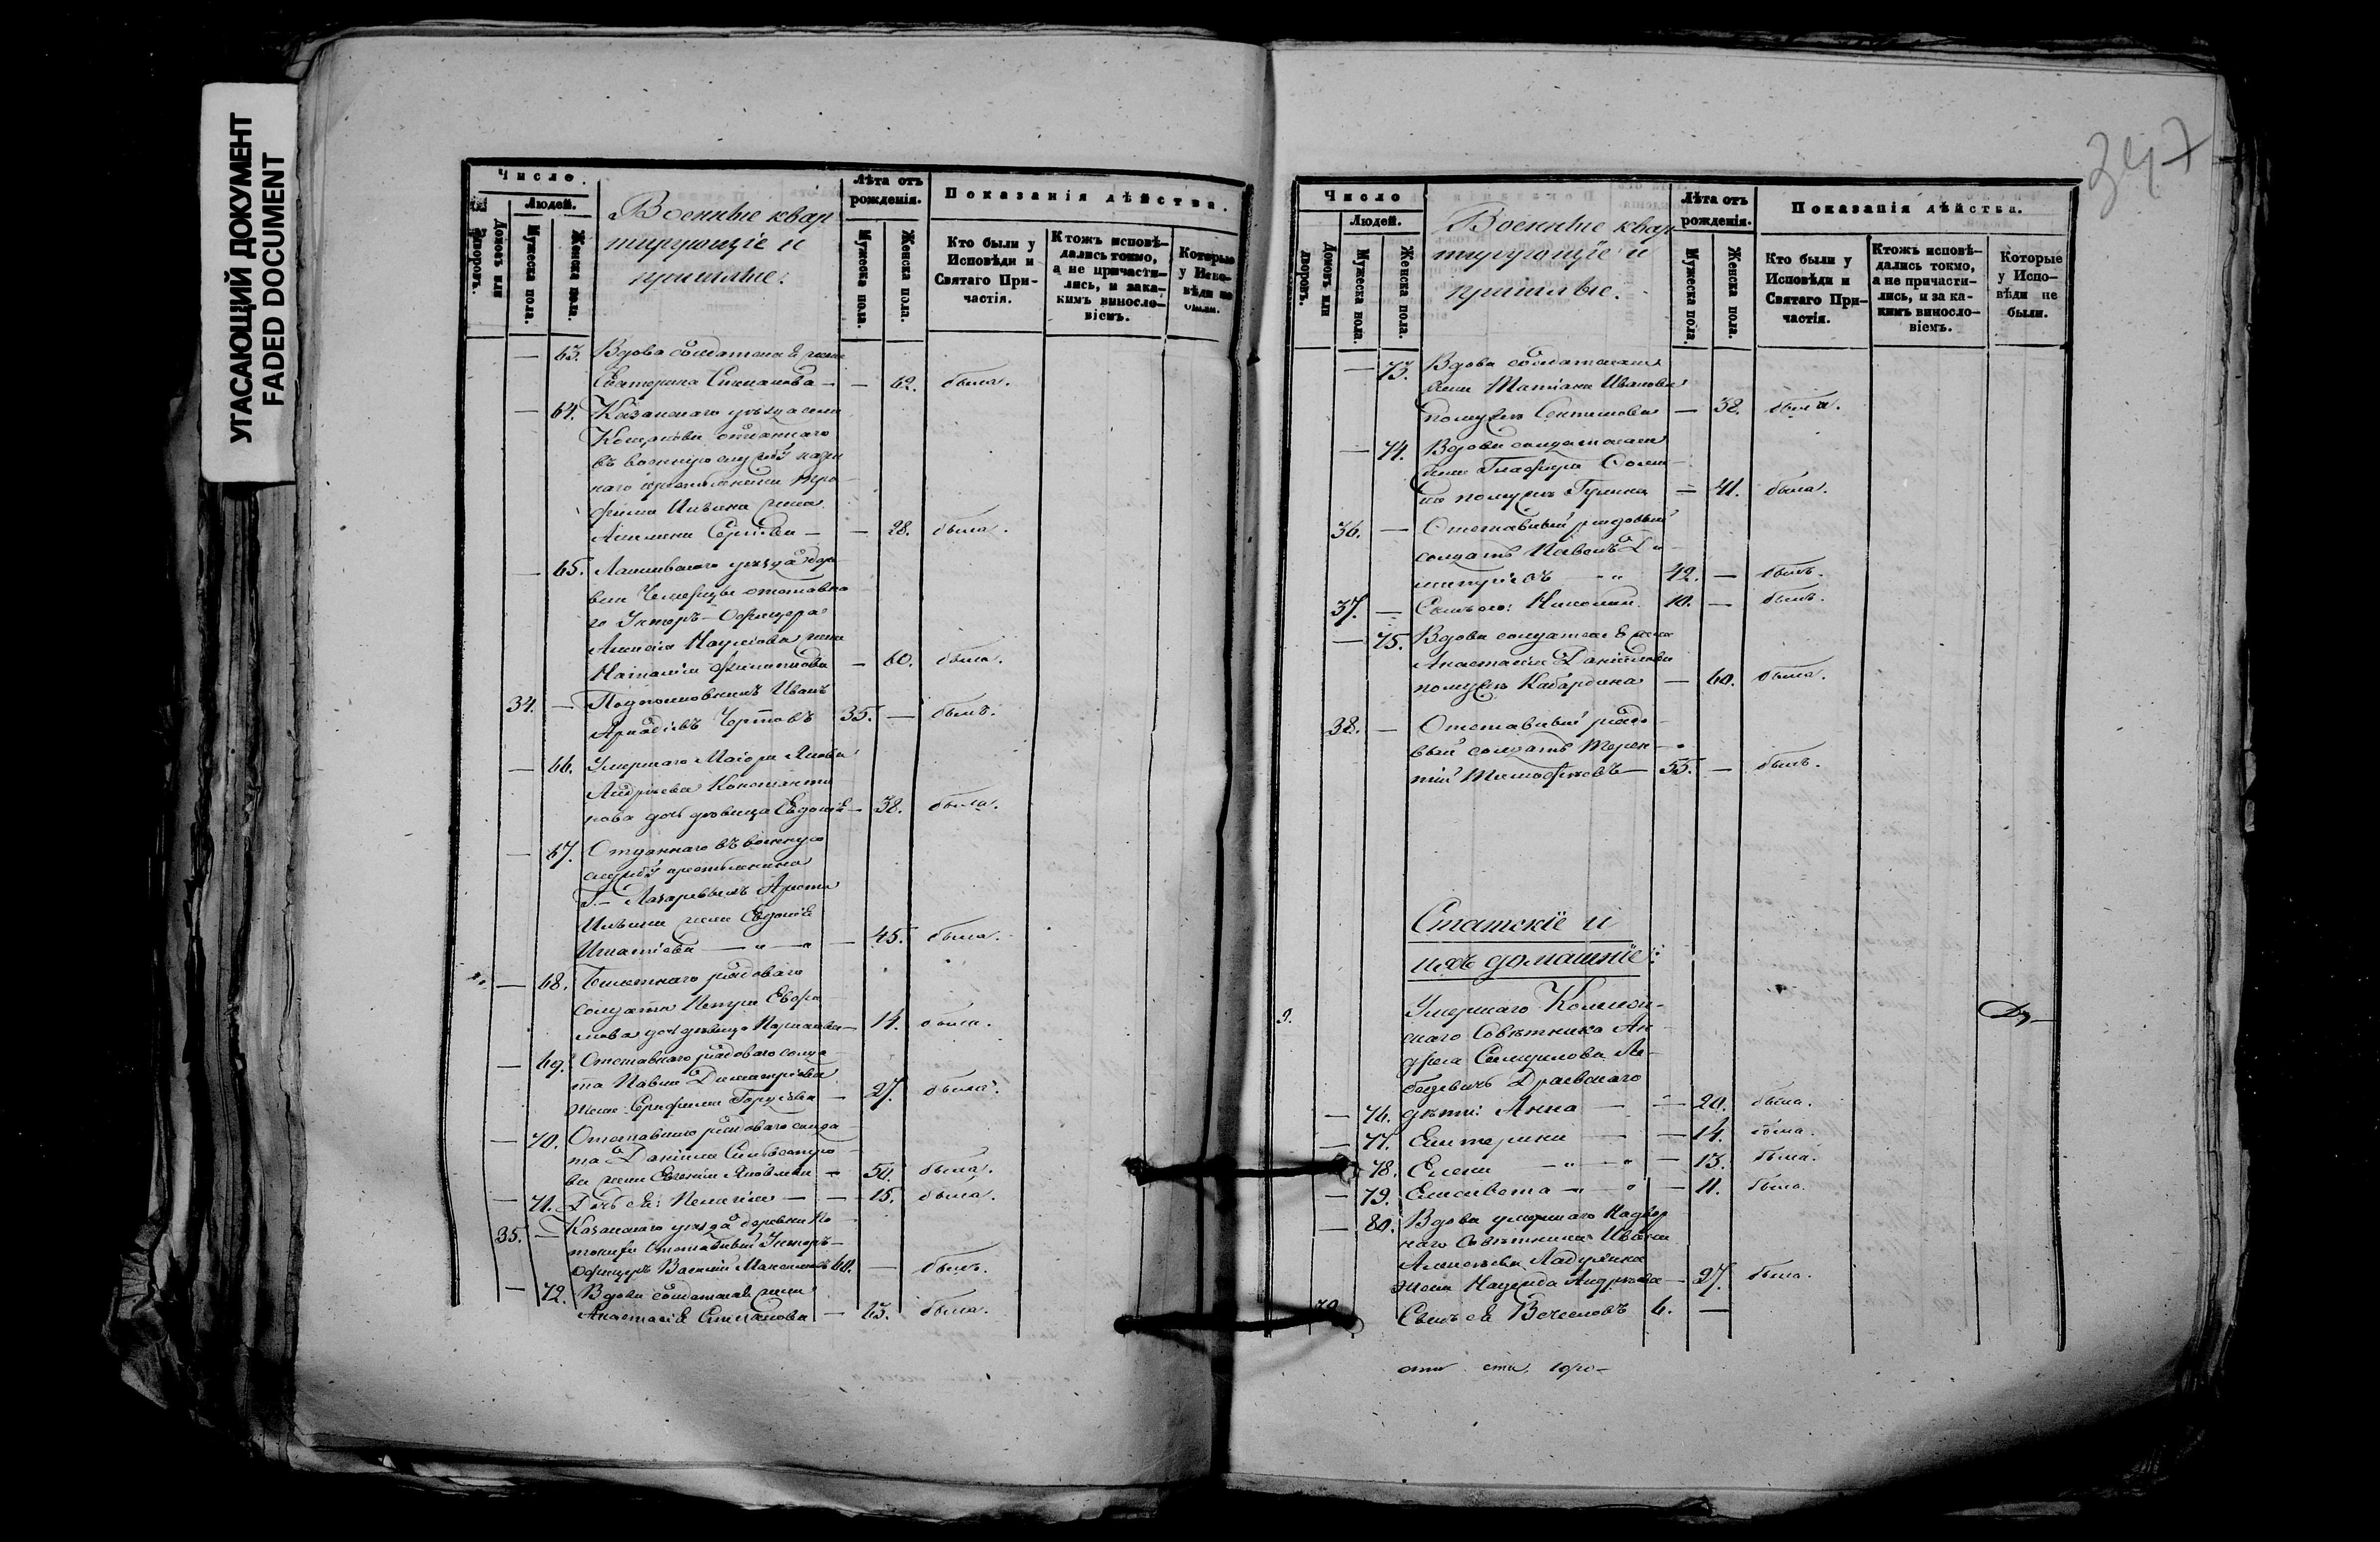 УГАСАЮЩИЙ ДОКУМЕНТ
FADED DOCUMENT
Число.
Людей.
Домовъ или дворовъ.
Мужеска пола.
Женска пола.
Военные квар
тирующіе и
пришлые.
Лѣта отъ
рожденія.
Мужеска пола.
Женска пола.
Показанія дѣйства.
Кто были у
Исповѣди и
Святаго При-
частія.
Ктожъ исповѣ-
дались токмо,
а не причасти-
лись, и зака-
кимъ винosло-
віемъ.
Которые
у Испо-
вѣди не
были.
— 63. Вдова солдатская жена
Екатерина Степанова — — 62. была.
— 64. Казанскаго уѣзда села
отданнаго
въ военную службу
наго крестьянина Тро
фима Ильина жена
Сергѣева — — 28. была.
— 65. Лаишевскаго уѣзда дере
вни отставна
го Унтеръ-Офицера
Алексѣя Наумова жена
Наталія Филиппова — 60. была.
34. — Подполковникъ Иванъ
Аркадіевъ Чертовъ 35. — былъ.
— 66. Умершаго Маіора Якова
Андрѣева Константи
нова дочь дѣвица Евдокія — 38. была.
— 67. Отданнаго въ военную
службу крестьянина
Г. Лазаревыхъ
Ильина жена Евдокія
Игнатіева — „ — „ — 45. была.
— 68. Билетнаго рядоваго
солдата Петра Ефре
мова дочь дѣвица — 14. была.
— 69. Отставнаго рядоваго солда
та Павла Димитріева
жена — 27. была.
— 70. Отставнаго рядоваго солда
та Даніила Сильвестро
ва жена Евгенія Яковлева — 50. была.
— 71. Дочь ея: Пелагія — — 15. была.
35. — Казанскаго уѣзда деревни
отставный Унтеръ-
Офицеръ Василій Максимовъ 60. — былъ.
— 72. Вдова солдатская жена
Анастасія Степанова — 63. была.
347
Число
Людей.
Домовъ или дворовъ.
Мужеска пола.
Женска пола.
Военные квар-
тирующіе и
пришлые.
Лѣта отъ
рожденія.
Мужеска пола.
Женска пола.
Показанія дѣйства.
Кто были у
Исповѣди и
Святаго При-
частія.
Ктожъ исповѣ-
дались токмо,
а не причасти-
лись, и за ка-
кимъ винosло-
віемъ.
Которые
у Испо-
вѣди не
были.
— 73. Вдова солдатская
жена Татіана Иванова
помужѣ — 38. была.
— 74. Вдова солдатская
жена Глафира
помужѣ — 41. была.
36. — Отставный рядовый
солдатъ Павелъ Ди
митріевъ — „ 42. — былъ.
37. — Сынъ его: Николай. 10. — былъ.
— 75. Вдова солдатская жена
Анастасія Даніилова
помужѣ Кабардина — 60. была.
38. — Отставный рядо
вый солдатъ Терен-
тій Тимофѣевъ — 55. — былъ.
Статскіе и
ихъ домашніе:
9. Умершаго Коллеж-
скаго Совѣтника Ан
дрея Самуилова Ле-
Драевскаго
— 76. дѣти: Анна — — 20. была.
— 77. Екатерина — — 14. была.
— 78. Елена — „ — „ — 13. была.
— 79. Елисавета — „ — „ — 11. была.
— 80. Вдова умершаго Надвор
наго Совѣтника Ивана
Алексѣева
жена Надежда Андрѣева — 27. была.
Сынъ ея Вячеславъ 6. —